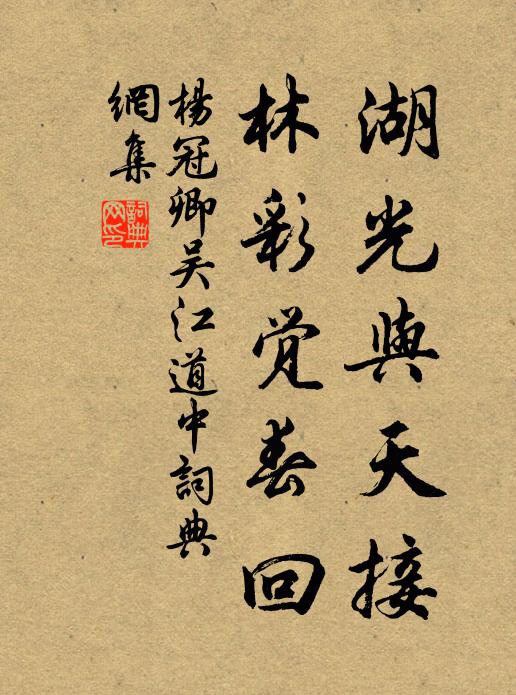 湖光與天接
林彩覺春回
楊冠卿吴江道中詞典
網集
詞典網印